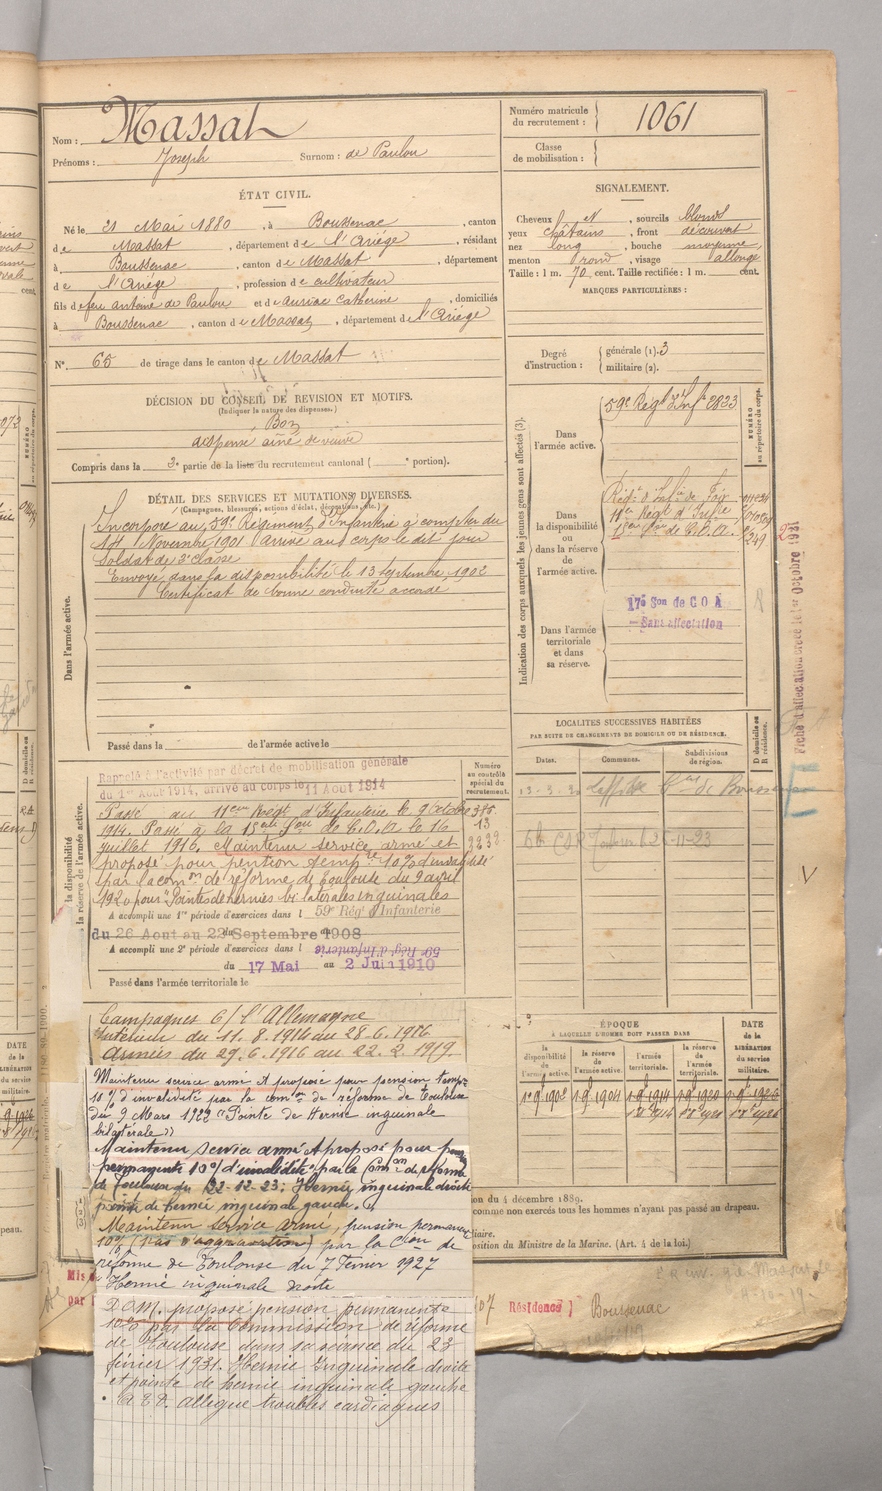 Nom : Massat
Prénoms : Joseph Surnom : de Paulou
Numéro matricule du recrutement : 1061
Classe de mobilisation :
ÉTAT CIVIL.
Né le 21 Mai 1880, à Boussenac, canton
de Massat, département de l'Ariége, résidant
à Boussenac, canton de Massat, département
de l'Ariége, profession de cultivateur
fils de feu antoine de Paulou et de auriac Catherine, domiciliés
à Boussenac, canton de Massat, département de l'Ariége
N° 65 de tirage dans le canton de Massat
SIGNALEMENT.
Cheveux et, sourcils blonds
yeux châtains, front découvert
nez long, bouche moyenne,
menton rond, visage allongé
Taille : 1 m. 70 cent. Taille rectifiée : 1 m. cent.
MARQUES PARTICULIÈRES :
Degré d'instruction : générale (1). 3
militaire (2).
DÉCISION DU CONSEIL DE REVISION ET MOTIFS.
(Indiquer la nature des dispenses.)
Bon
dispensé ainé de veuve
Compris dans la 3e partie de la liste du recrutement cantonal ( e portion).
DÉTAIL DES SERVICES ET MUTATIONS DIVERSES.
(Campagnes, blessures, actions d'éclat, décorations, etc.)
Dans l'armée active.
Incorporé au 59e Régiment d'Infanterie à compter du
14 Novembre 1901 arrivé au corps le dit jour
Soldat de 2e classe
Envoyé dans la disponibilité le 13 Septembre 1902
Certificat de bonne conduite accordé
Passé dans la de l'armée active le
Indication des corps auxquels les jeunes gens sont affectés (3).
NUMÉRO au répertoire du corps.
Dans l'armée active.
59e Régt Inf 2833
Dans la disponibilité ou dans la réserve de l'armée active.
Régt d'Infie de Foix
11e Régt d'Infie
15e Son de C.O.A.
249
Dans l'armée territoriale et dans sa réserve.
17e Son de C O A
Sans affectation
Fiche d'affectation créée le 1er Octobre 1931
LOCALITES SUCCESSIVES HABITÉES
PAR SUITE DE CHANGEMENTS DE DOMICILE OU DE RÉSIDENCE.
Dates. Communes. Subdivisions de région. D domicile ou R résidence.
Numéro au contrôle spécial du recrutement.
Rappelé à l'activité par décret de mobilisation générale
du 1er Aout 1914, arrivé au corps le 11 Aout 1914
Passé au 11eme Régt d'Infanterie le 9 Octobre
1914. Passé à la 15eme Son de C.O.A le 16
juillet 1916. Maintenu service armé et
proposé pour pention tempre 10% d'invalidité
par la comon de réforme de Toulouse du 9 avril
1920 pour "Pointes de hernies bi latérales inguinales
A accompli une 1re période d'exercices dans l 59e Rég d'Infanterie
du 26 Aout au 22 Septembre 1908
A accompli une 2e période d'exercices dans l 59e Rég d'Infanterie
du 17 Mai au 2 Juin 1910
Passé dans l'armée territoriale le
Campagnes C/ l'Allemagne
Intérieur du 11.8.1914 au 28.6.1916
Armées du 29.6.1916 au 22.2.1919
Maintenu service armé et proposé pour pension tempre
10% d'invalidité par la comon de réforme de Toulouse
du 9 Mars 1922 "Pointe de Hernie inguinale
bilatérale"
Maintenu service armé et proposé pour
permanente 10% d'invalidité par la Comon de réforme
de Toulouse du 22-12-23; Hernie inguinale droite
pointe de hernie inguinale gauche.
Maintenu service armé, pension permanente
10% (pas d'aggravation) par la Con de
réforme de Toulouse du 7 Février 1927
Hernie inguinale droite
proposé pension permanente
10% par la Commission de réforme
de Toulouse dans sa séance du 23
février 1931. Hernie Inguinale droite
et pointe de hernie inguinale gauche
allègue troubles cardiaques
ÉPOQUE
À LAQUELLE L'HOMME DOIT PASSER DANS
la disponibilité de l'armée active. la réserve de l'armée active. l'armée territoriale. la réserve de l'armée territoriale.
DATE de la LIBÉRATION du service militaire.
ion du 4 décembre 1889.
comme non exercés tous les hommes n'ayant pas passé au drapeau.
iaire.
osition du Ministre de la Marine. (Art. 4 de la loi.)
Résidence Boussenac